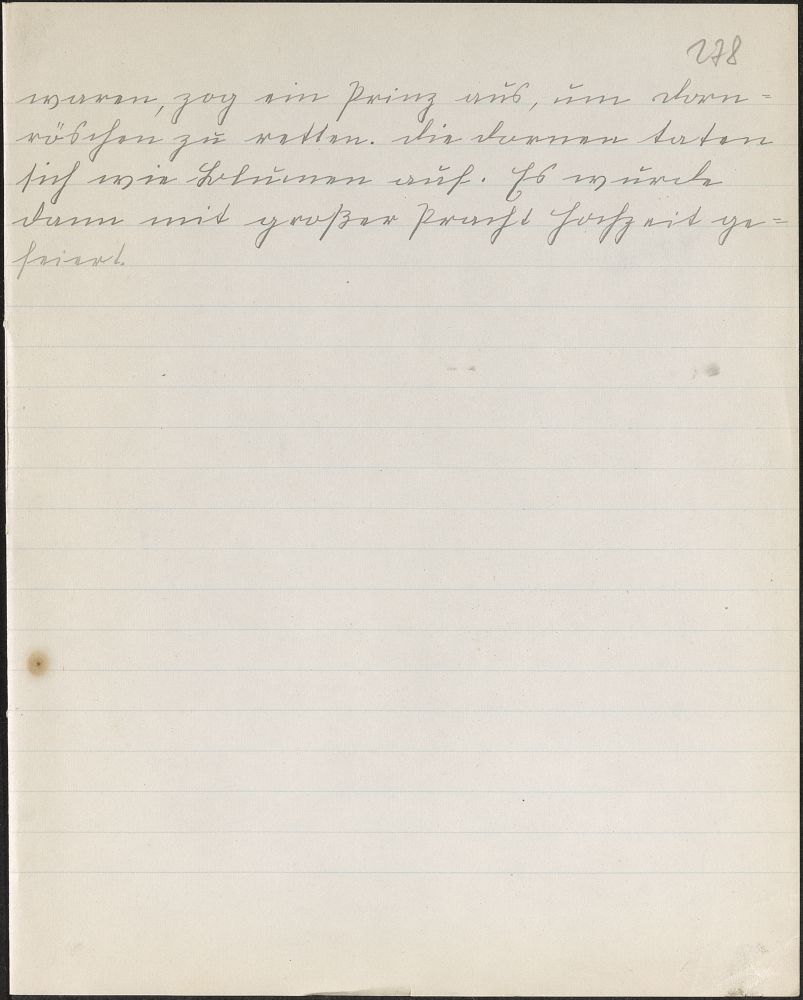 278
waren, zog ein Prinz aus, um Dorn=
röschen zu retten. Die Dornen taten
sich wie Blumen auf. Es wurde
dann mit großer Pracht Hochzeit ge=
feiert.